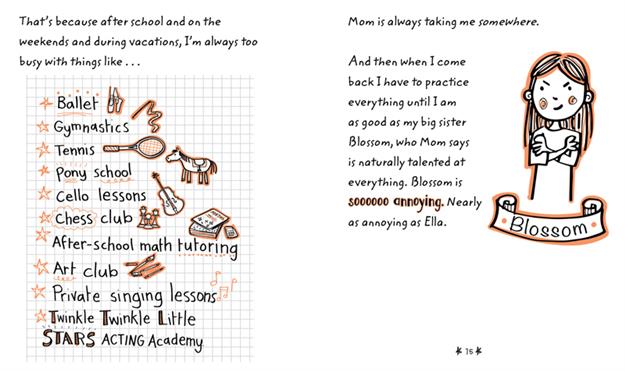 That's because after school and on the
weekends and during vacations, I'm always too
busy with things like . . .
Ballet
Gymnastics
Tennis
Pony school
Cello lessons
Chess club
After-school math tutoring
Art club
Private singing lessons
Twinkle Twinkle Little
STARS ACTING Academy
Mom is always taking me somewhere.
And then when I come
back I have to practice
everything until I am
as good as my big sister
Blossom, who Mom says
is naturally talented at
everything. Blossom is
soooooo annoying. Nearly
as annoying as Ella.
Blossom
15